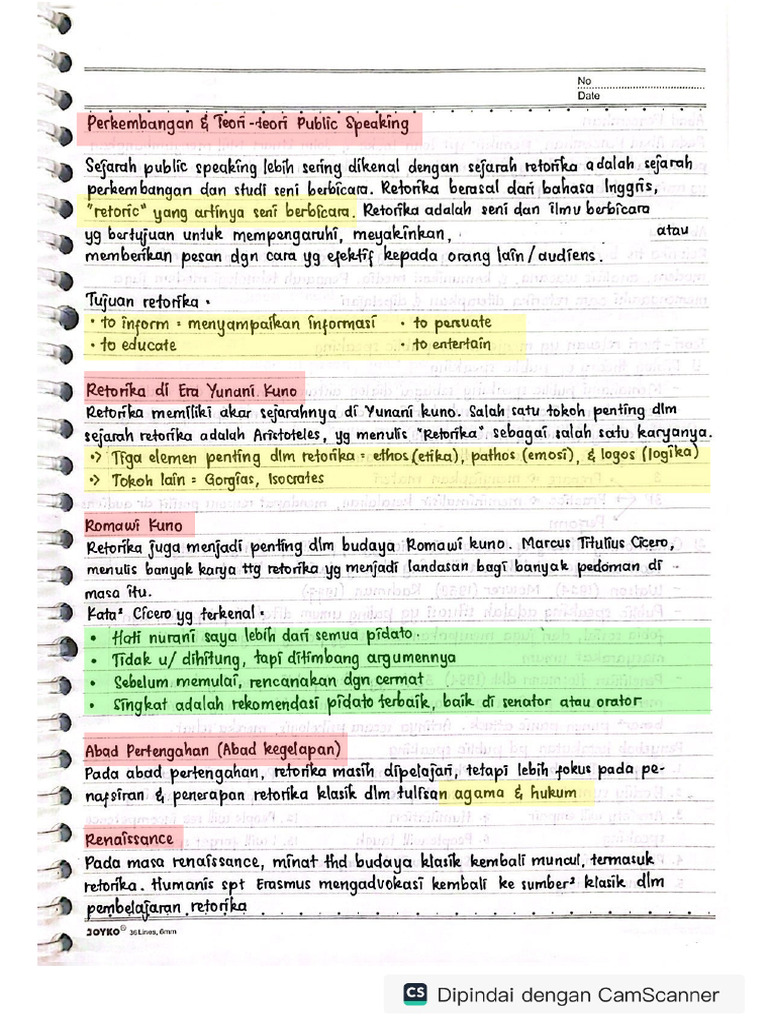 No
Date
Perkembangan & Teori-teori Public Speaking
Sejarah public speaking lebih sering dikenal dengan sejarah retorika adalah sejarah
perkembangan dan studi seni berbicara. Retorika berasal dari bahasa Inggris,
"retoric" yang artinya seni berbicara. Retorika adalah seni dan ilmu berbicara
yg bertujuan untuk mempengaruhi, meyakinkan, atau
memberikan pesan dgn cara yg efektif kepada orang lain/audiens.
Tujuan retorika :
• to inform = menyampaikan informasi • to persuate
• to educate • to entertain
Retorika di Era Yunani Kuno
Retorika memiliki akar sejarahnya di Yunani kuno. Salah satu tokoh penting dlm
sejarah retorika adalah Aristoteles, yg menulis "Retorika" sebagai salah satu karyanya.
·> Tiga elemen penting dlm retorika = ethos (etika), pathos (emosi), & logos (logika)
·> Tokoh lain = Gorgias, Isocrates
Romawi Kuno
Retorika juga menjadi penting dlm budaya Romawi kuno. Marcus Titulius Cicero,
menulis banyak karya ttg retorika yg menjadi landasan bagi banyak pedoman di
masa itu.
Kata² Cicero yg terkenal :
• Hati nurani saya lebih dari semua pidato.
• Tidak u/ dihitung, tapi ditimbang argumennya
• Sebelum memulai, rencanakan dgn cermat
• Singkat adalah rekomendasi pidato terbaik, baik di senator atau orator
Abad Pertengahan (Abad kegelapan)
Pada abad pertengahan, retorika masih dipelajari, tetapi lebih fokus pada pe-
nafsiran & penerapan retorika klasik dlm tulisan agama & hukum
Renaissance
Pada masa renaissance, minat thd budaya klasik kembali muncul, termasuk
retorika. Humanis spt Erasmus mengadvokasi kembali ke sumber² klasik dlm
pembelajaran retorika
JOYKO® 36 Lines, 6mm
CS Dipindai dengan CamScanner